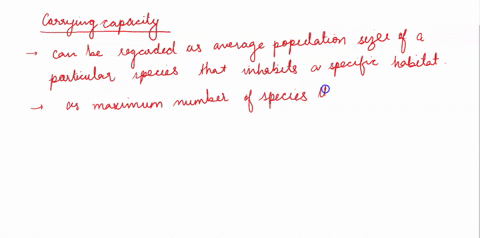 Carrying capacity
→ can be regarded as average population sizes of a
particular species that inhabits a specific habitat.
→ as maximum number of species